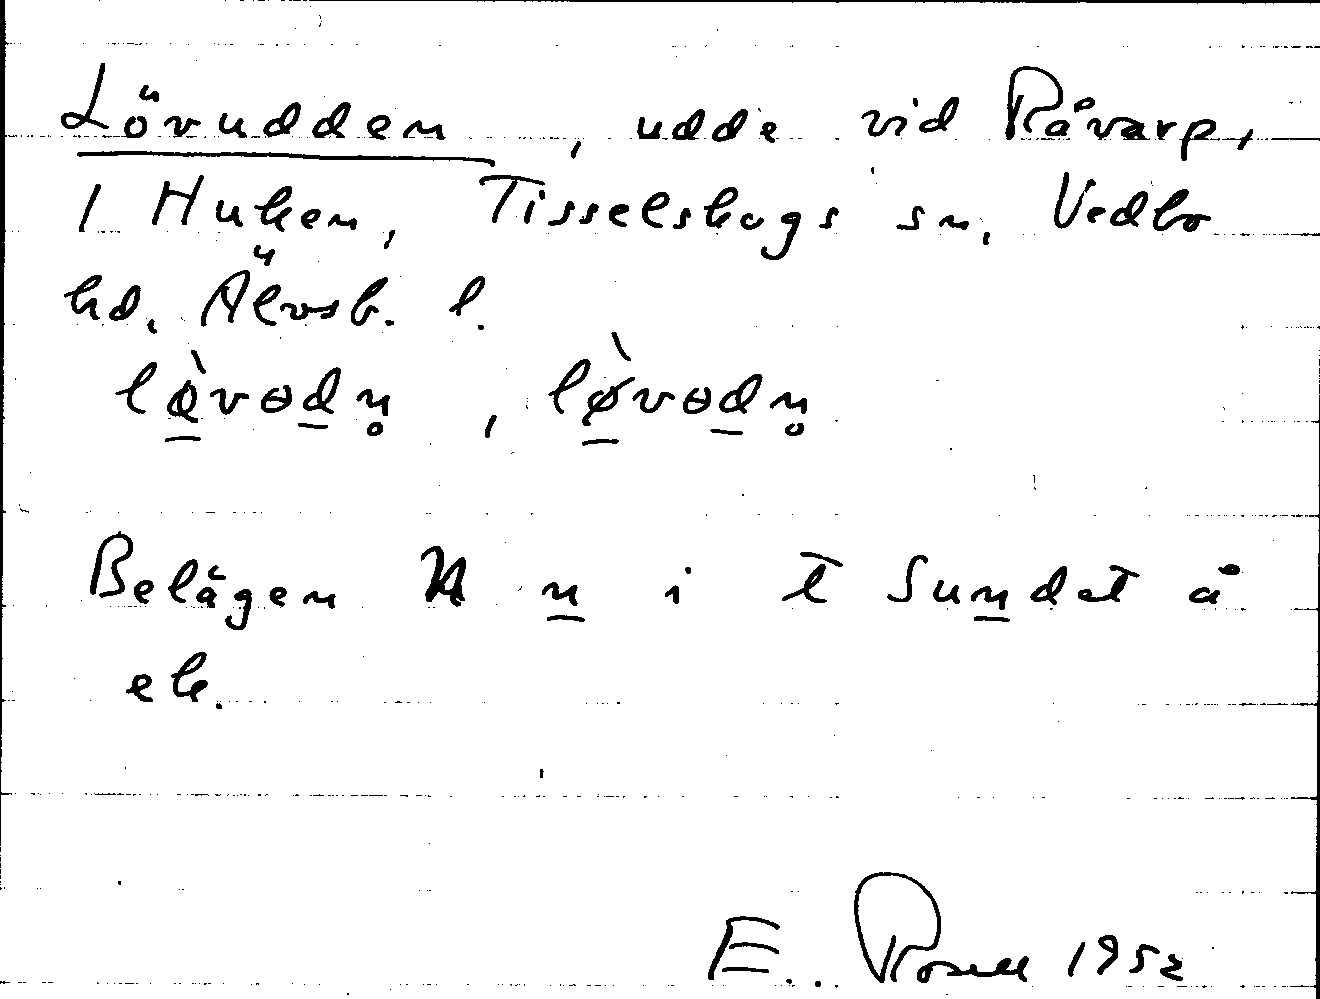 Lövudden, udde vid Råvarp,
1 Huken, Tisselskogs sn, Vedbo
hd. Älvsb. l.
lø̱̀vɵd̲n̥, lø̱̀vɵd̲n̥
Belägen n̲ i t Sun̲det å
ek.
E. Rosell 1952